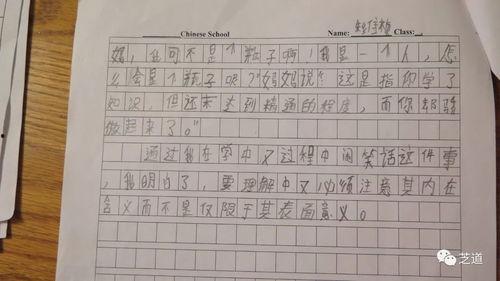 Chinese School Name: Class:
妈，我可不是个瓶子啊！我是一个人，怎
么会是个瓶子呢？"妈妈说："这是指你学了
知识，但还未达到精通的程度，而你却骄
傲起来了。"
通过我在学中文过程中闹笑话这件事
，我明白了，要理解中文必须注意其内在
含义而不是仅限于其表面意义。
芝道